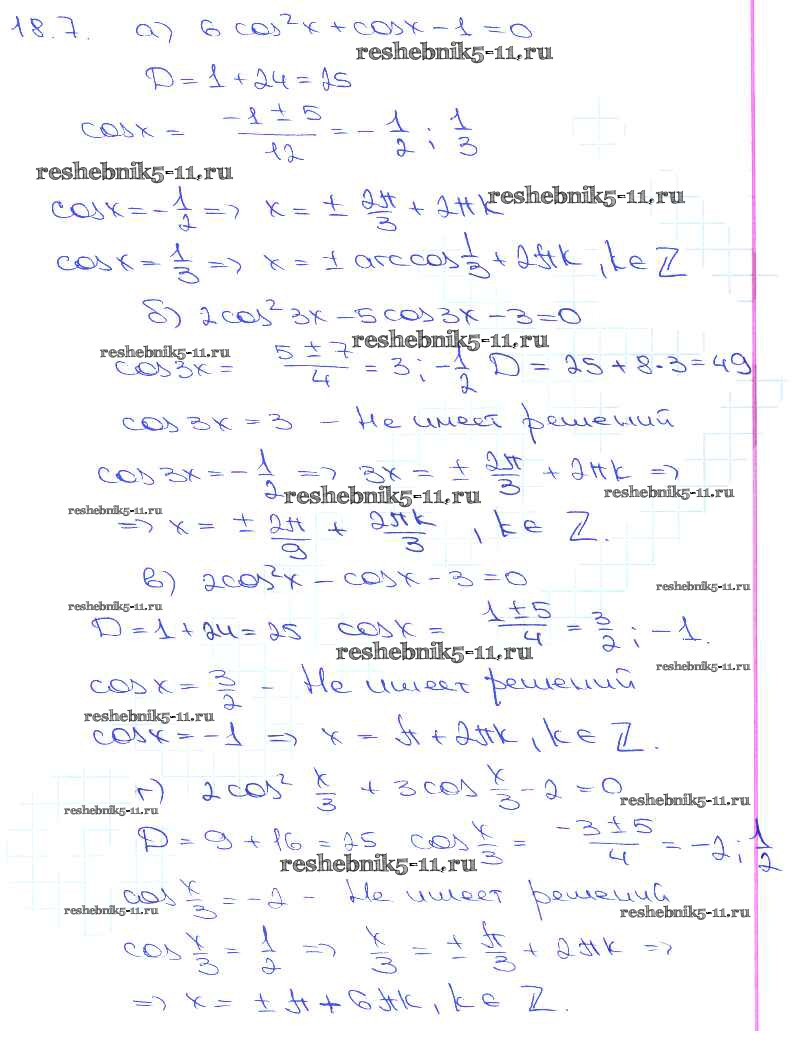 18.7. а) 6 cos²x + cosx − 1 = 0
reshebnik5-11.ru
D = 1 + 24 = 25
cosx = (−1 ± 5)/12 = −1/2 ; 1/3
reshebnik5-11.ru
cosx = −1/2 => x = ± 2π/3 + 2πk reshebnik5-11.ru
cosx = 1/3 => x = ± arccos 1/3 + 2πk , k ∈ Z
б) 2cos²3x − 5cos3x − 3 = 0
reshebnik5-11.ru reshebnik5-11.ru
cos3x = (5 ± 7)/4 = 3 ; −1/2 D = 25 + 8·3 = 49
cos3x = 3 – Не имеет решений
cos3x = −1/2 => 3x = ± 2π/3 + 2πk =>
reshebnik5-11.ru reshebnik5-11.ru
reshebnik5-11.ru
=> x = ± 2π/9 + 2πk/3 , k ∈ Z.
в) 2cos²x − cosx − 3 = 0
reshebnik5-11.ru
reshebnik5-11.ru
D = 1 + 24 = 25 cosx = (1 ± 5)/4 = 3/2 ; −1.
reshebnik5-11.ru
reshebnik5-11.ru
cosx = 3/2 – Не имеет решений
reshebnik5-11.ru
cosx = −1 => x = π + 2πk , k ∈ Z.
г) 2cos² x/3 + 3cos x/3 − 2 = 0
reshebnik5-11.ru reshebnik5-11.ru
D = 9 + 16 = 25 cos x/3 = (−3 ± 5)/4 = −2 ; 1/2
reshebnik5-11.ru
cos x/3 = −2 – Не имеет решений
reshebnik5-11.ru reshebnik5-11.ru
cos x/3 = 1/2 => x/3 = ± π/3 + 2πk =>
=> x = ± π + 6πk , k ∈ Z.